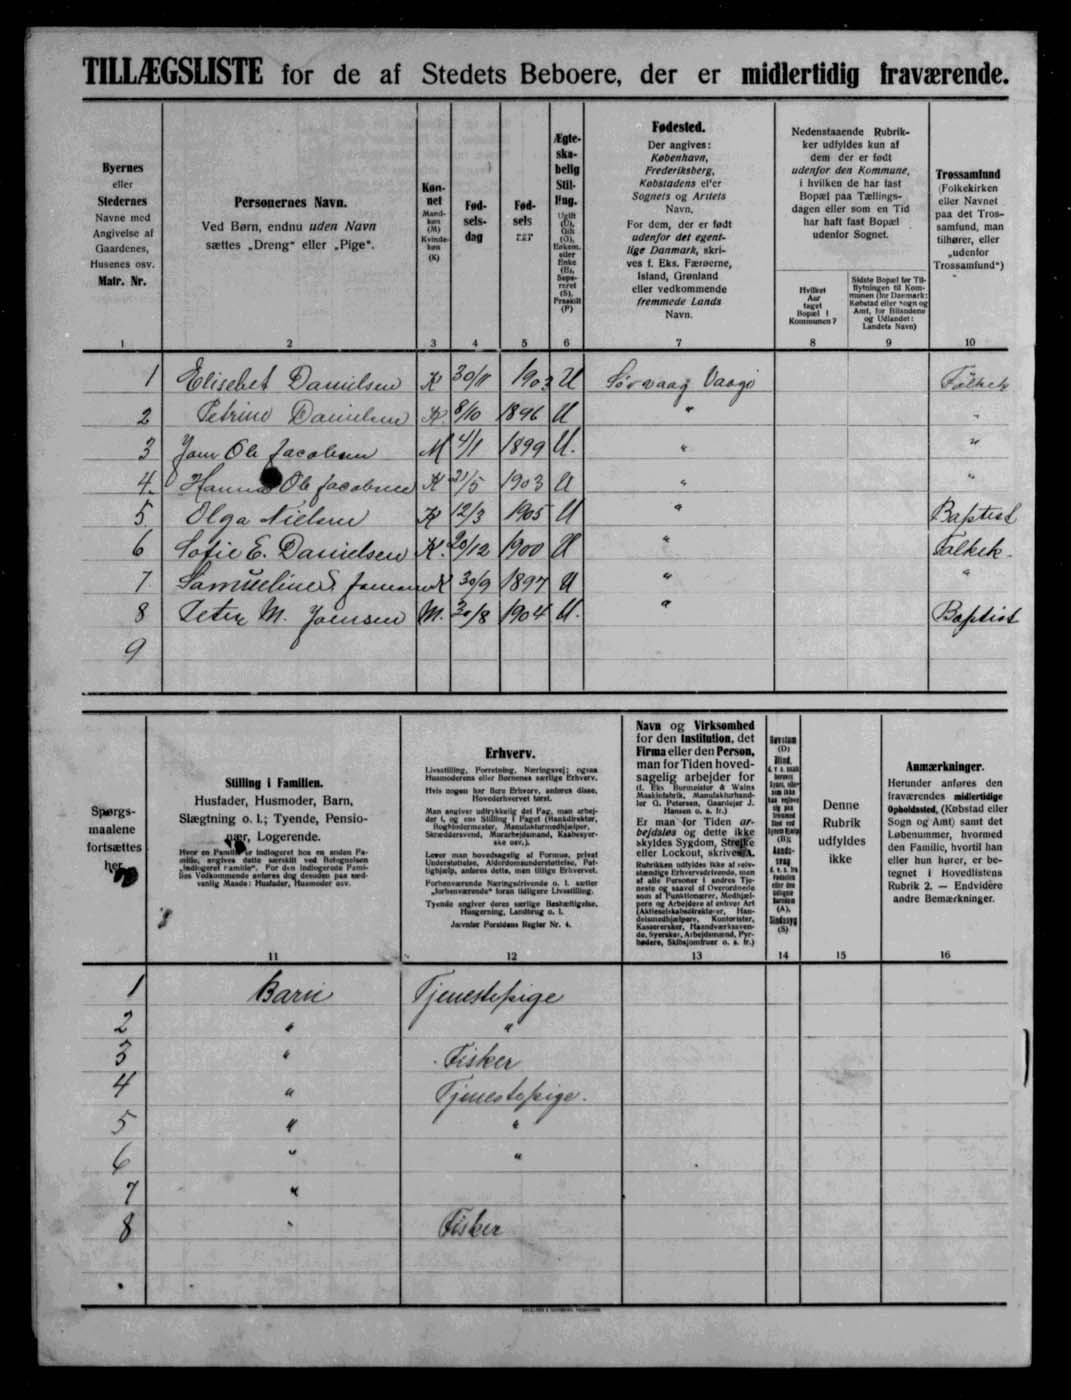 TILLÆGSLISTE for de af Stedets Beboere, der er midlertidig fraværende.
Byernes
eller
Stedernes
Navne med
Angivelse af
Gaardenes,
Husenes osv.
Matr. Nr.
1
Personernes Navn.
Ved Børn, endnu uden Navn
sættes „Dreng“ eller „Pige“.
2
Køn-
net
Mand-
køn
(M)
Kvinde-
køn
(K)
3
Fød-
sels-
dag
4
Fød-
sels
aar
5
Ægte-
ska-
belig
Stil-
ling.
Ugift
(U),
Gift
(G),
Enkem.
eller
Enke
(E),
Sepa-
reret
(S),
Fraskilt
(F)
6
Fødested.
Der angives:
København,
Frederiksberg,
Købstadens eller
Sognets og Amtets
Navn.
For dem, der er født
udenfor det egent-
lige Danmark, skri-
ves f. Eks. Færøerne,
Island, Grønland
eller vedkommende
fremmede Lands
Navn.
7
Nedenstaaende Rubrik-
ker udfyldes kun af
dem der er født
udenfor den Kommune,
i hvilken de har fast
Bopæl paa Tællings-
dagen eller som en Tid
har haft fast Bopæl
udenfor Sognet.
Hvilket
Aar
taget
Bopæl i
Kommunen?
8
Sidste Bopæl før Til-
flytningen til Kom-
munen (for Danmark:
Købstad eller Sogn og
Amt, for Bilandene
og Udlandet:
Landets Navn)
9
Trossamfund
(Folkekirken
eller Navnet
paa det Tros-
samfund, man
tilhører, eller
„udenfor
Trossamfund“)
10
1 Elisebet Danielsen K 30/11 1903 U Sørvaag Vaagø Folkek
2 Petrine Danielsen K. 8/10 1896 U " "
3 Jonn Ole Jacobsen M 4/1 1899 U. " "
4. Hanna Ole Jacobsen K 21/5 1903 U " "
5 Olga Nielsen K 12/3 1905 U " Baptist
6 Sofie E. Danielsen K. 20/12 1900 U " Folkek.
7 Samueline S Joensen K 30/9 1897 U " "
8 Peter M. Joensen M. 30/8 1904 U. " Baptist
9
Spørgs-
maalene
fortsættes
her
Stilling i Familien.
Husfader, Husmoder, Barn,
Slægtning o. l.; Tyende, Pensio-
nær, Logerende.
Hvor en Familie er indlogeret hos en anden Fa-
milie, angives dette særskilt ved Betegnelsen
„indlogeret Familie“. For den indlogerede Fami-
lies Vedkommende anføres dog desuden paa sæd-
vanlig Maade: Husfader, Husmoder osv.
11
Erhverv.
Livsstilling, Forretning, Næringsvej; ogsaa
Husmoderens eller Børnenes særlige Erhverv.
Hvis nogen har flere Erhverv, anføres disse,
Hovederhvervet først.
Man angiver udtrykkelig det Fag, man arbej-
der i, og ens Stilling i Faget (Bankdirektør,
Bogbindermester, Manufakturmedhjælper,
Skræddersvend, Murarbejdsmand, Kasbesyer-
ske osv.).
Lever man hovedsagelig af Formue, privat
Understøttelse, Alderdomsunderstøttelse, Fat-
tighjælp, anføres dette, men tillige Erhvervet.
Forhenværende Næringsdrivende o. l. sætter
„forhenværende“ foran tidligere Livsstilling.
Tyende angiver deres særlige Beskæftigelse,
Husgerning, Landbrug o. l.
Jævnfør Forsidens Regler Nr. 4.
12
Navn og Virksomhed
for den Institution, det
Firma eller den Person,
man for Tiden hoved-
sagelig arbejder for
(f. Eks Burmeister & Wains
Maskinfabrik, Manufakturhand-
ler G. Petersen, Gaardejer J.
Hansen o. s. fr.)
Er man for Tiden ar-
bejdsløs og dette ikke
skyldes Sygdom, Strejke
eller Lockout, skrives A.
Rubrikken udfyldes ikke af selv-
stændige Erhvervsdrivende, men
af alle Personer i andres Tje-
neste og saavel af Overordnede
som af Funktionærer, Medhjæl-
pere og Arbejdere af enhver Art
(Aktieselskabsdirektører, Han-
delsmedhjælpere, Kontorister,
Kasserersker, Haandværkssven-
de, Syersker, Arbejdsmænd, Fyr-
bødere, Skibsjomfruer o. s. fr.)
13
14
Denne
Rubrik
udfyldes
ikke
15
Anmærkninger.
Herunder anføres den
fraværendes midlertidige
Opholdssted, (Købstad eller
Sogn og Amt) samt det
Løbenummer, hvormed
den Familie, hvortil han
eller hun hører, er be-
tegnet i Hovedlistens
Rubrik 2. — Endvidere
andre Bemærkninger.
16
1 Barn Tjenestepige
2 " "
3 " Fisker
4 " Tjenestepige.
5 " "
6 " "
7 "
8 " Fisker